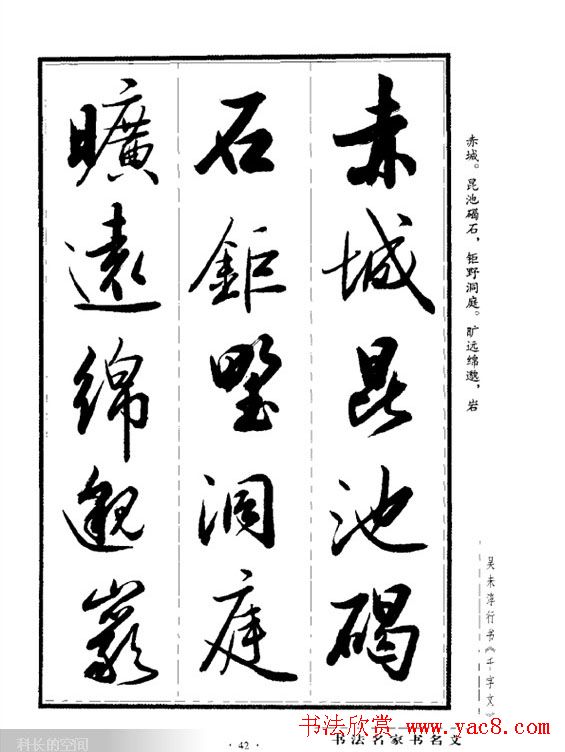 赤城昆池碣
石鉅野洞庭
曠遠綿邈巖
赤城。昆池碣石，钜野洞庭。旷远绵邈，岩
吴未淳行书《千字文》
·42·
书法名家书名文
书法欣赏 www.yac8.com
科长的空间